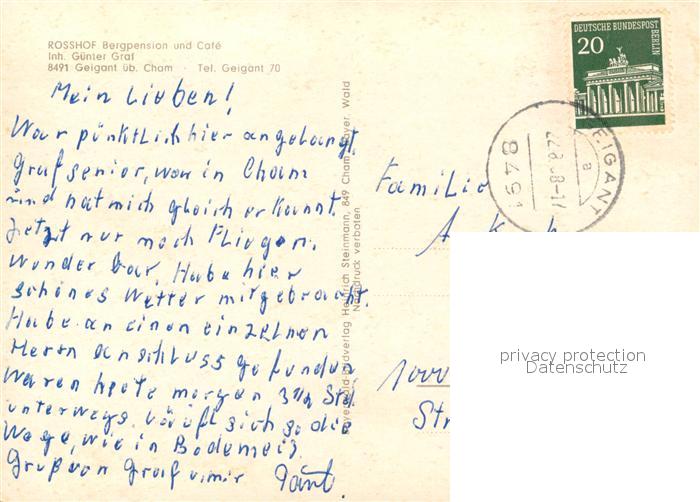 ROSSHOF Bergpension und Café
Inh. Günter Graf
8491 Geigant üb. Cham · Tel. Geigant 70
Mein Lieben!
War pünktlich hier angelangt.
Graf senior, war in Cham
und hat mich gleich erkannt.
Jetzt nur noch Fliegen.
Wunderbar. Habe hier
schönes Wetter mitgebracht.
Habe an einen einzelnen
Herrn anschluss gefunden
Waren heute morgen 3 1/2 Std.
unterwegs. läuft sich so die
Wege, wie in Bodemeis.
Gruß von Graf u. mir
Bayerwald-Bildverlag Heinrich Steinmann, 849 Cham/Bayer. Wald
Nachdruck verboten
DEUTSCHE BUNDESPOST
BERLIN
20
GEIGANT
8491
a
Familie
A
1000
Str
privacy protection
Datenschutz